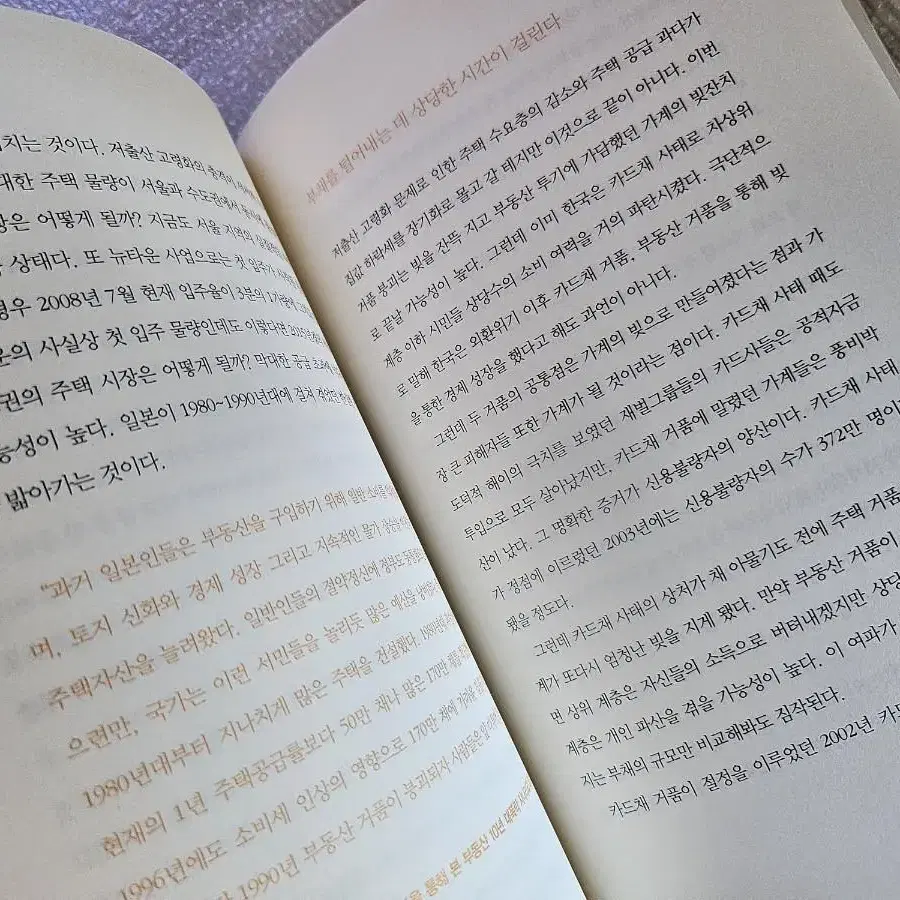 치는 것이다. 저출산 고령화의 충격이
대한 주택 물량이 서울과 수도권에서
장은 어떻게 될까? 지금도 서울 지역의
상태다. 또 뉴타운 사업으로는 첫 입주가
경우 2008년 7월 현재 입주율이 3분의 1가량에
운의 사실상 첫 입주 물량인데도 이렇다면
권의 주택 시장은 어떻게 될까? 막대한 공급
능성이 높다. 일본이 1980~1990년대에 걸쳐 겪었던
밟아가는 것이다.
"과거 일본인들은 부동산을 구입하기 위해 일반 소비를
며, 토지 신화와 경제 성장 그리고 지속적인 물가
주택자산을 늘려왔다. 일반인들의 절약정신에
으련만, 국가는 이런 서민들을 놀리듯 많은 예산을
1980년대부터 지나치게 많은 주택을 건설했다.
현재의 1년 주택공급률보다 50만 채나 많은 170만 채를
1996년에도 소비세 인상의 영향으로 170만 채에
1990년 부동산 거품이 붕괴되자 사람들은
통해 본 부동산 10년
부채를 털어내는 데 상당한 시간이 걸린다
저출산 고령화 문제로 인한 주택 수요층의 감소와 주택 공급 과다가
집값 하락세를 장기화로 몰고 갈 테지만 이것으로 끝이 아니다. 이번
거품 붕괴는 빚을 잔뜩 지고 부동산 투기에 가담했던 가계의 빚잔치
로 끝날 가능성이 높다. 그런데 이미 한국은 카드채 사태로 차상위
계층 이하 시민들 상당수의 소비 여력을 거의 파탄시켰다. 극단적으
로 말해 한국은 외환위기 이후 카드채 거품, 부동산 거품을 통해 빚
을 통한 경제 성장을 했다고 해도 과언이 아니다.
그런데 두 거품의 공통점은 가계의 빚으로 만들어졌다는 점과 가
장 큰 피해자들 또한 가계가 될 것이라는 점이다. 카드채 사태 때도
도덕적 해이의 극치를 보였던 재벌그룹들의 카드사들은 공적자금
투입으로 모두 살아났지만, 카드채 거품에 말렸던 가계들은 풍비박
산이 났다. 그 명확한 증거가 신용불량자의 양산이다. 카드채 사태
가 정점에 이르렀던 2003년에는 신용불량자의 수가 372만 명이
됐을 정도다.
그런데 카드채 사태의 상처가 채 아물기도 전에 주택 거품
계가 또다시 엄청난 빚을 지게 됐다. 만약 부동산 거품이
면 상위 계층은 자신들의 소득으로 버텨내겠지만 상당
계층은 개인 파산을 겪을 가능성이 높다. 이 여파가
지는 부채의 규모만 비교해봐도 짐작된다.
카드채 거품이 절정을 이루었던 2002년 카드